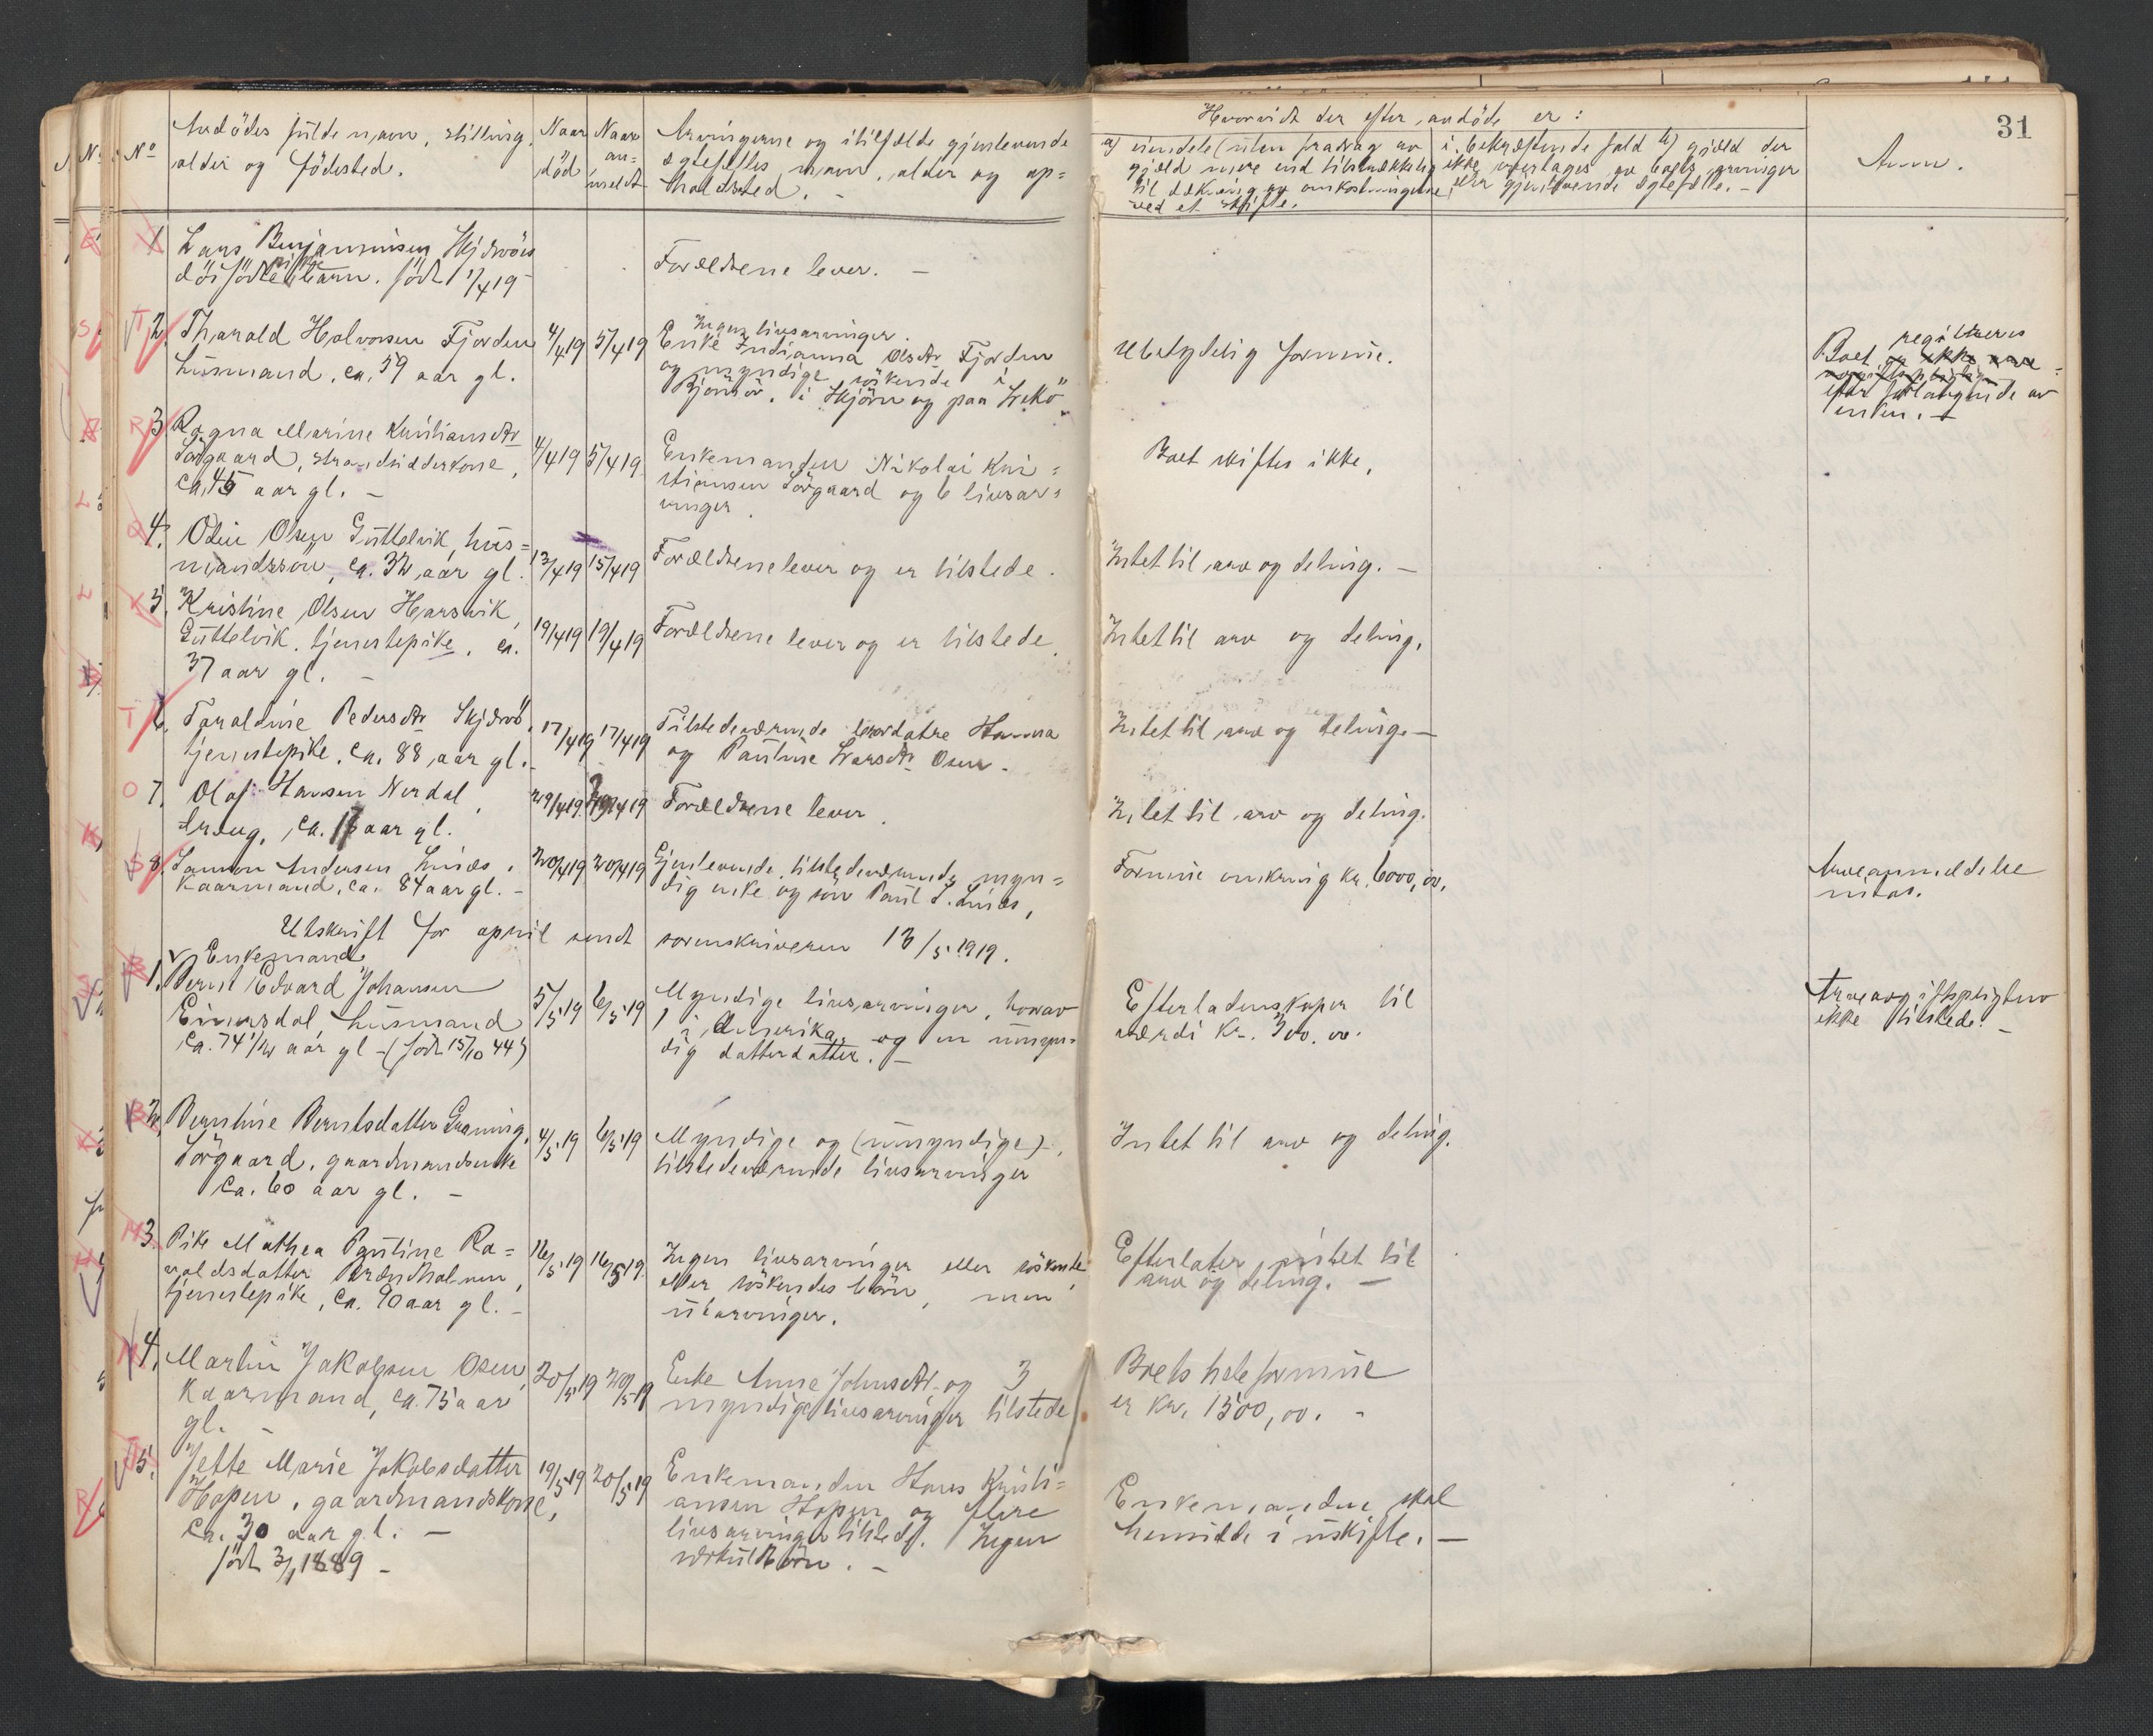 31
No
Avdödes fulde navn, stilling,
alder og födested.
Naar
död
Naar
an-
meldt
Arvingerne og i tilfælde gjenlevende
egtefælles navn, alder og op=
holdssted. -
Hvorvidt der efter avdöde er:
a) eiendele (uten fradrag av
gjæld mere end tilstrækkelig
til dækning av omkostningerne
ved et skifte.
i bekræftende fald b) gjæld der
ikke overtages av boets arvinger
eller gjenlevende egtefælle. -
Anm.
1. Lars Benjaminsen Skjærvöis
dödfödte pikebarn. Födt 1/4 19
Forældrene lever. -
2. Tharald Halvorsen Fjorden
husmand, ca. 59 aar gl.
4/4 19 5/4 19
Ingen livsarvinger.
Enke Indianna Olsdtr Fjorden
og myndige söskende i
Bjönör, i Skjörn og paa Frokö.
Ubetydelig formue.
Boet registreres
efter forlangende av
enken. -
3. Ragna Marine Kristiansdtr
Sörgaard, strandsidderkone,
ca. 45 aar gl. -
4/4 19 5/4 19
Enkemanden Nikolai Kri=
stiansen Sörgaard og 6 livsar=
vinger.
Boet skiftes ikke.
4. Otin Olsen Guttelvik, hus=
mandssön, ca. 32 aar gl.
13/4 19 15/4 19
Forældrene lever og er tilstede.
Intet til arv og deling. -
5. Kristine Olsen Harsvik,
Guttelvik, tjenestepike, ca.
37 aar gl. -
19/4 19 19/4 19
Forældrene lever og er tilstede.
Intet til arv og deling.
6. Taraldine Pedersdtr Skjærvö,
tjenestepike, ca. 88 aar gl. -
17/4 19 17/4 19
Tilstedeværende brordötre Hanna
og Pauline Iversdtr Osen. -
Intet til arv og deling. -
7. Olaf Hansen Nordal,
dreng, ca. 17 aar gl.
29/4 19 29/4 19
Forældrene lever.
Intet til arv og deling.
8. Simon Andersen Lines,
Kaarmand, ca. 84 aar gl. -
20/4 19 20/4 19
Gjenlevende, tilstedeværende myn=
dig enke og sön Paul S. Lines,
Formue omkring kr. 6000,00,
Arveanmeldelse
mottas.
Utskrift for april sendt sorenskriveren 13/5 1919.
1. Enkemand
Bernt Edvard Johansen
Einersdal, husmand
ca. 74 1/2 aar gl - (födt 15/10 44)
5/5 19 6/5 19
Myndige livsarvinger, hvorav
1 i Amerika, og en umyn=
dig datterdatter. -
Efterladenskaper til
værdi Kr. 300.00.
Arveavgiftspligten
ikke tilstede. -
2. Berntine Berntsdatter Graning,
Sörgaard, gaardmandsenke
ca. 60 aar gl. -
4/5 19 6/5 19
Myndige og (umyndige)
tilstedeværende livsarvinger
Intet til arv og deling.
3. Pike Mathea Pauline Ra=
valdsdatter Brandholmen,
tjenestepike, ca. 90 aar gl. -
16/5 19 16/5 19
Ingen livsarvinger eller söskende
eller söskendes börn, men
utarvinger.
Efterlater intet til
arv og deling. -
4. Martin Jakobsen Osen,
Kaarmand, ca. 75 aar
gl. -
20/5 19 20/5 19
Enke Anne Johnsdtr og 3
myndige livsarvinger tilstede
Boets hele formue
er kr. 1500,00. -
5. Jette Marie Jakobsdatter
Hopen, gaardmandskone,
ca. 30 aar gl. -
födt 3/1 1889 -
19/5 19 20/5 19
Enkemanden Hans Kristi=
ansen Hopen og flere
livsarvinger tilstede. Ingen
særkuldbörn. -
Enkemanden skal
hensidde i uskifte. -